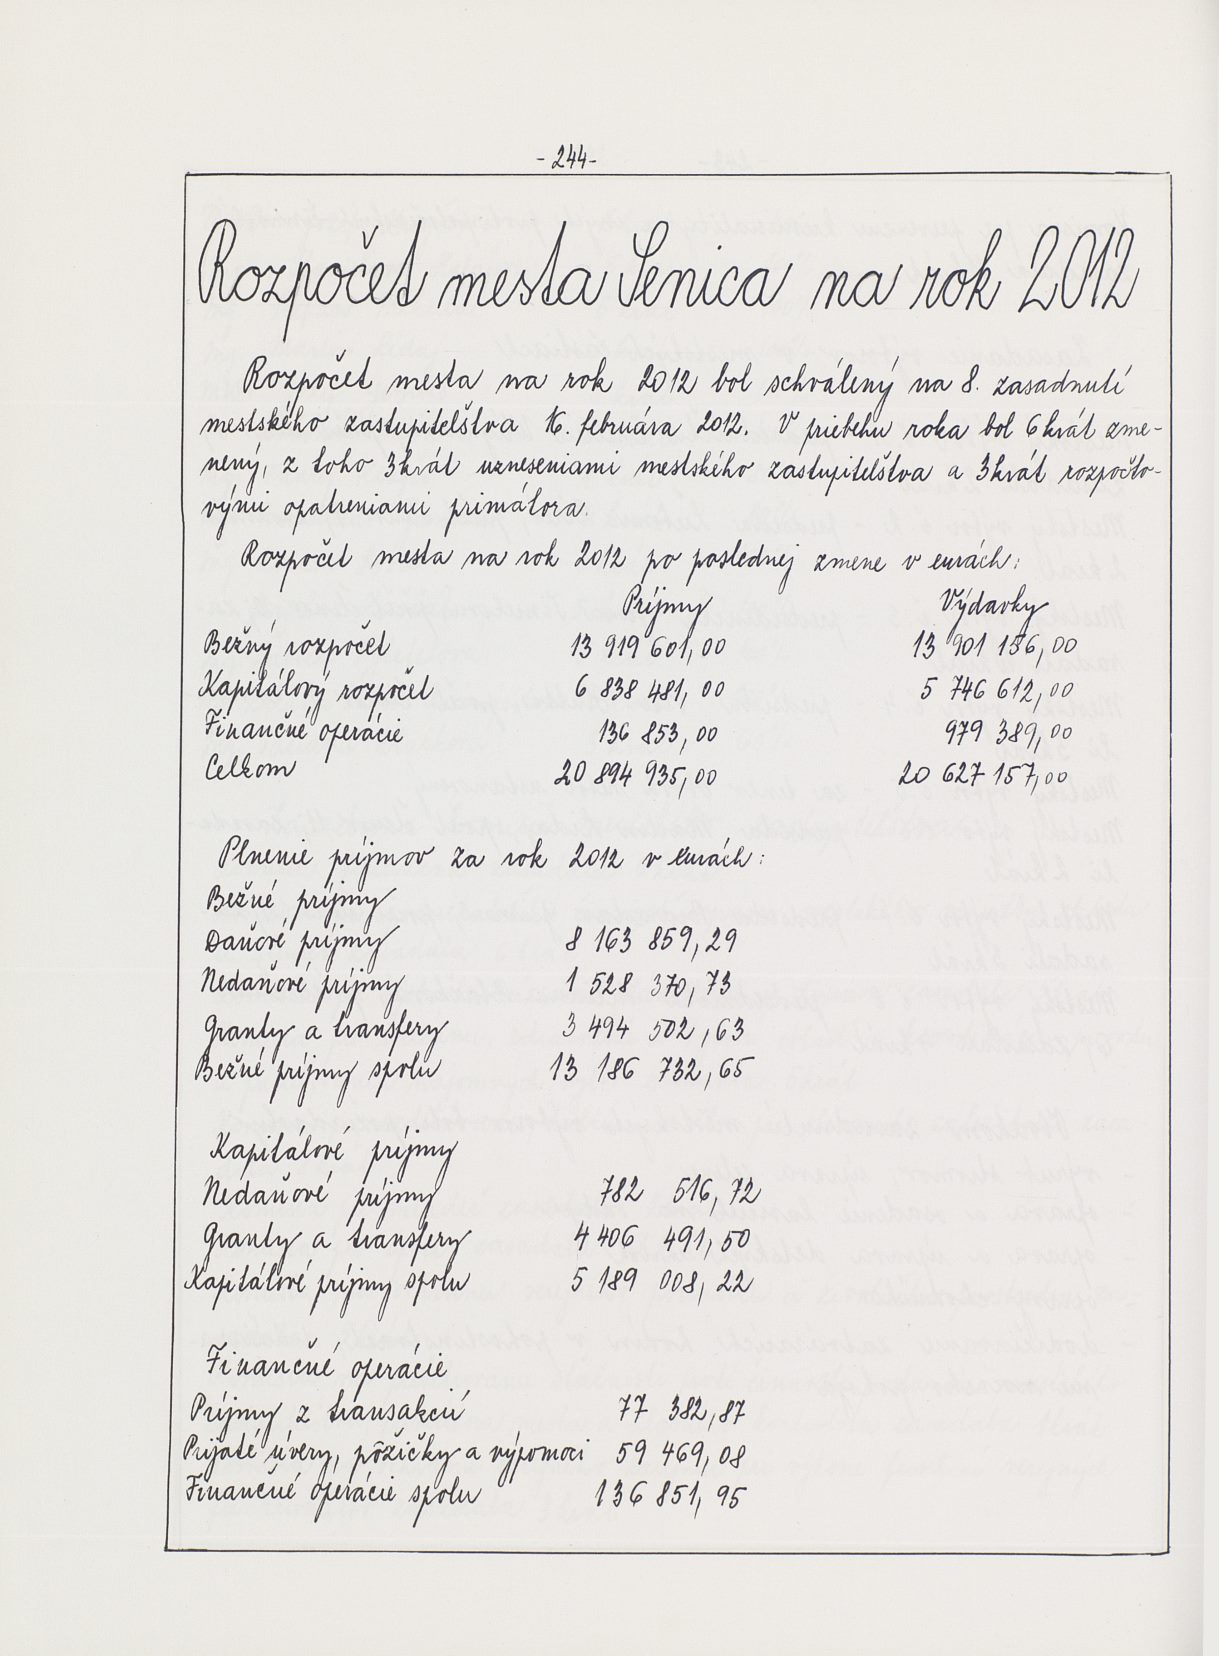 - 244 -
Rozpočet mesta Senica na rok 2012
Rozpočet mesta na rok 2012 bol schválený na 8. zasadnutí
mestského zastupiteľstva 16. februára 2012. V priebehu roka bol 6krát zme-
nený, z toho 3krát uzneseniami mestského zastupiteľstva a 3krát rozpočto-
vými opatreniami primátora.
Rozpočet mesta na rok 2012 po poslednej zmene v eurách:
Príjmy Výdavky
Bežný rozpočet 13 919 601,00 13 901 156,00
Kapitálový rozpočet 6 838 481,00 5 746 612,00
Finančné operácie 136 853,00 979 389,00
Celkom 20 894 935,00 20 627 157,00
Plnenie príjmov za rok 2012 v eurách:
Bežné príjmy
Daňové príjmy 8 163 859,29
Nedaňové príjmy 1 528 370,73
Granty a transfery 3 494 502,63
Bežné príjmy spolu 13 186 732,65
Kapitálové príjmy
Nedaňové príjmy 782 516,72
Granty a transfery 4 406 491,50
Kapitálové príjmy spolu 5 189 008,22
Finančné operácie
Príjmy z transakcií 77 382,87
Prijaté úvery, pôžičky a výpomoci 59 469,08
Finančné operácie spolu 136 851,95